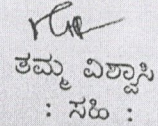 ತಮ್ಮ ವಿಶ್ವಾಸಿ
: ಸಹಿ :